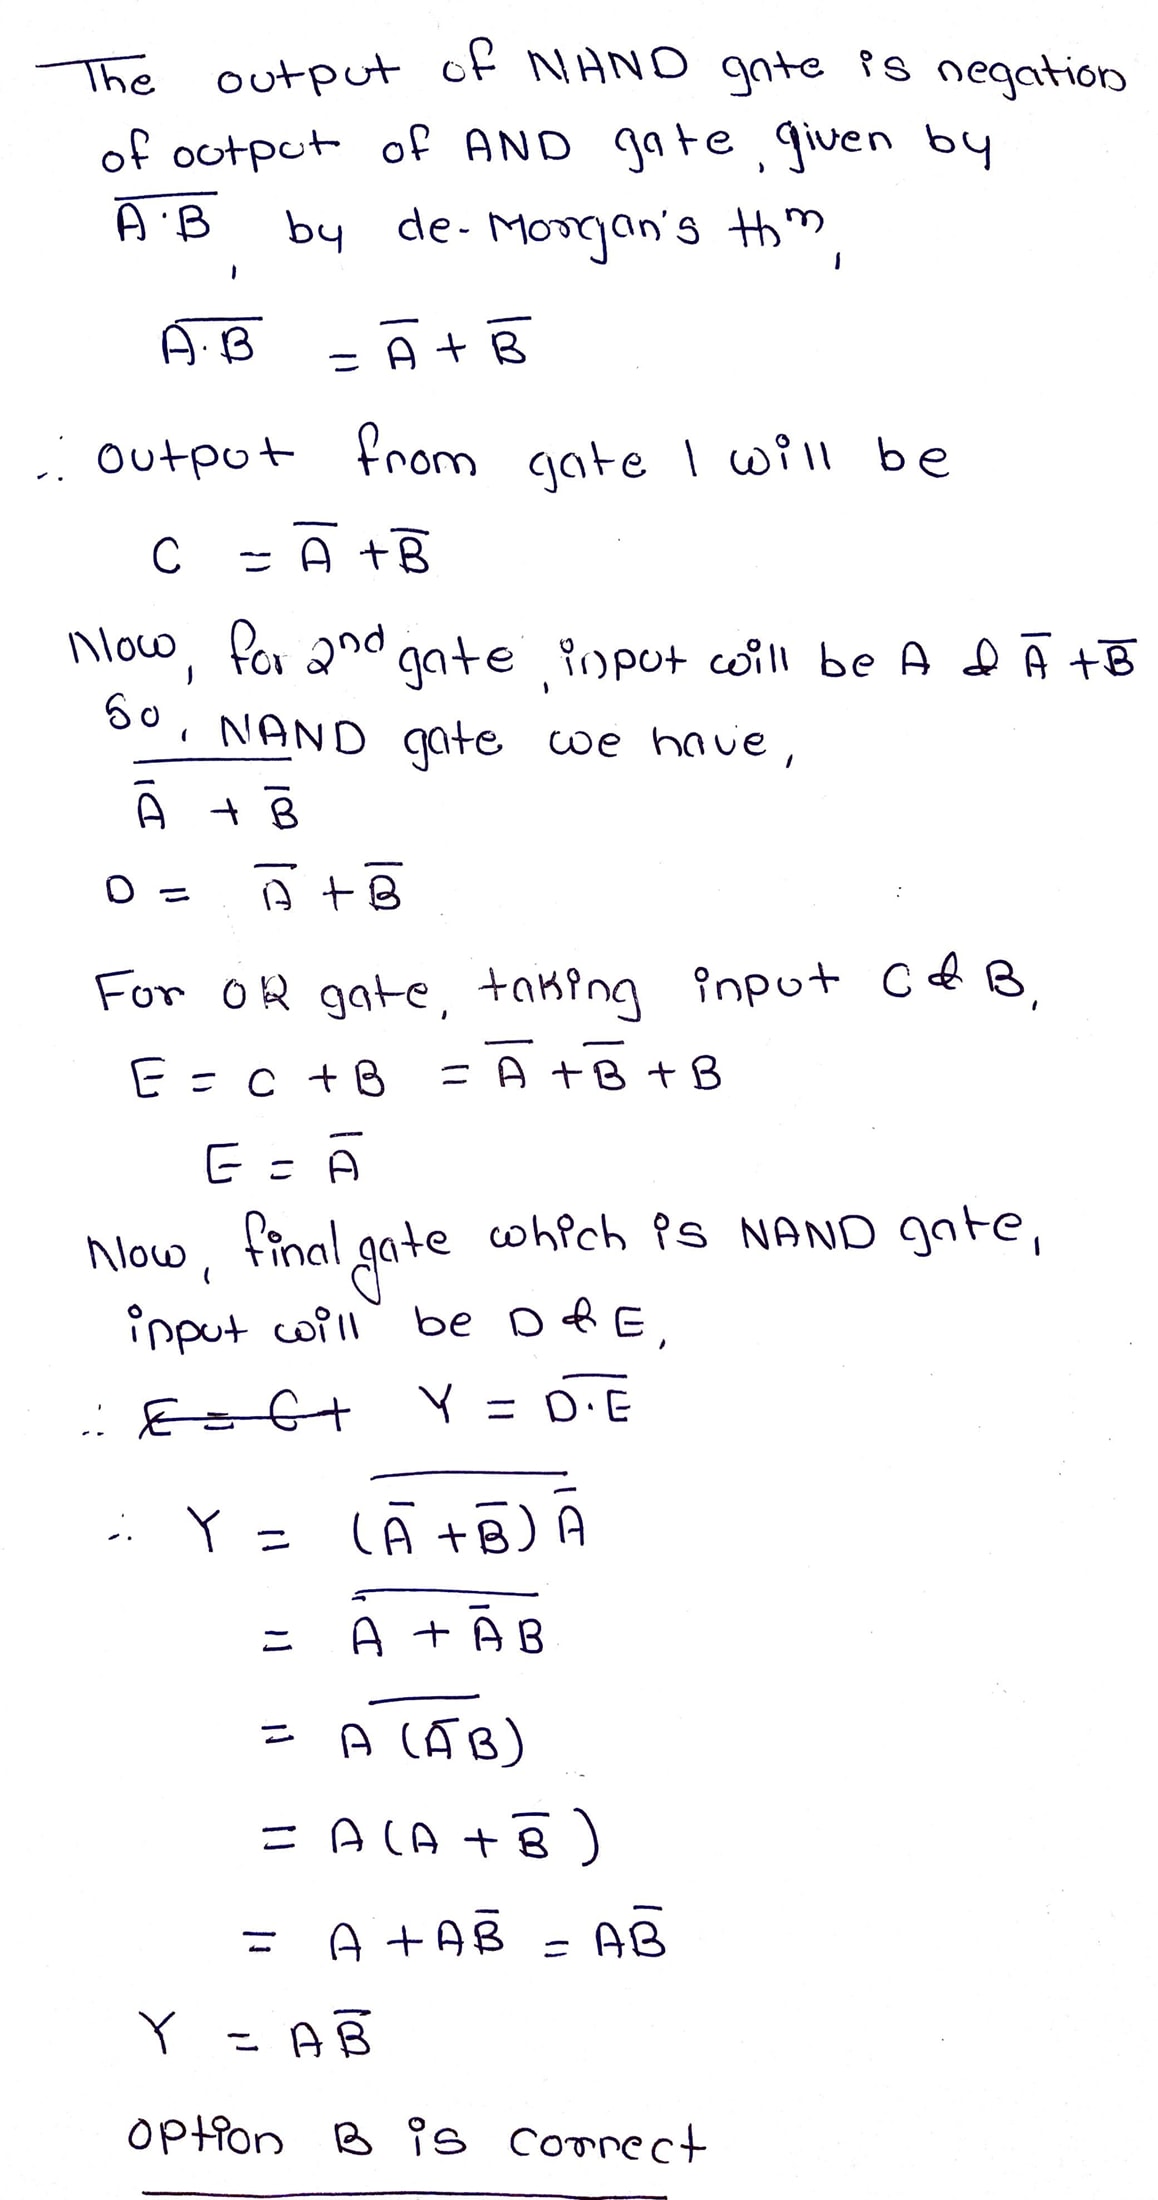 The output of NAND gate is negation
of output of AND gate, given by
\overline{A·B}, by de-Morgan's thm,
\overline{A.B} = \overline{A} + \overline{B}
∴ output from gate 1 will be
C = \overline{A} + \overline{B}
Now, for 2nd gate, input will be A & \overline{A} + \overline{B}
So, NAND gate we have,
\overline{\overline{A} + \overline{B}}
D = \overline{A} + \overline{B}
For OR gate, taking input C & B,
E = C + B = \overline{A} + \overline{B} + B
E = \overline{A}
Now, final gate which is NAND gate,
input will be D & E,
∴ ~~E = C +~~ Y = \overline{D.E}
∴ Y = \overline{(\overline{A} + \overline{B}) \overline{A}}
= \overline{\overline{A} + \overline{A} B}
= A \overline{(\overline{A} B)}
= A (A + \overline{B})
= A + A\overline{B} = A\overline{B}
Y = A\overline{B}
option B is correct